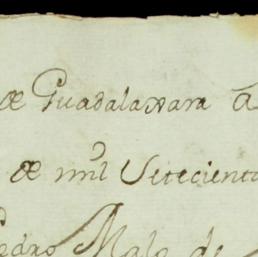 de Guadalaxara a
de mil Setecient
Pedro Malo de